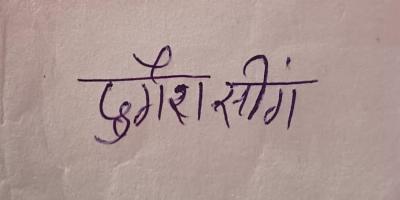 दुर्गेश सींग